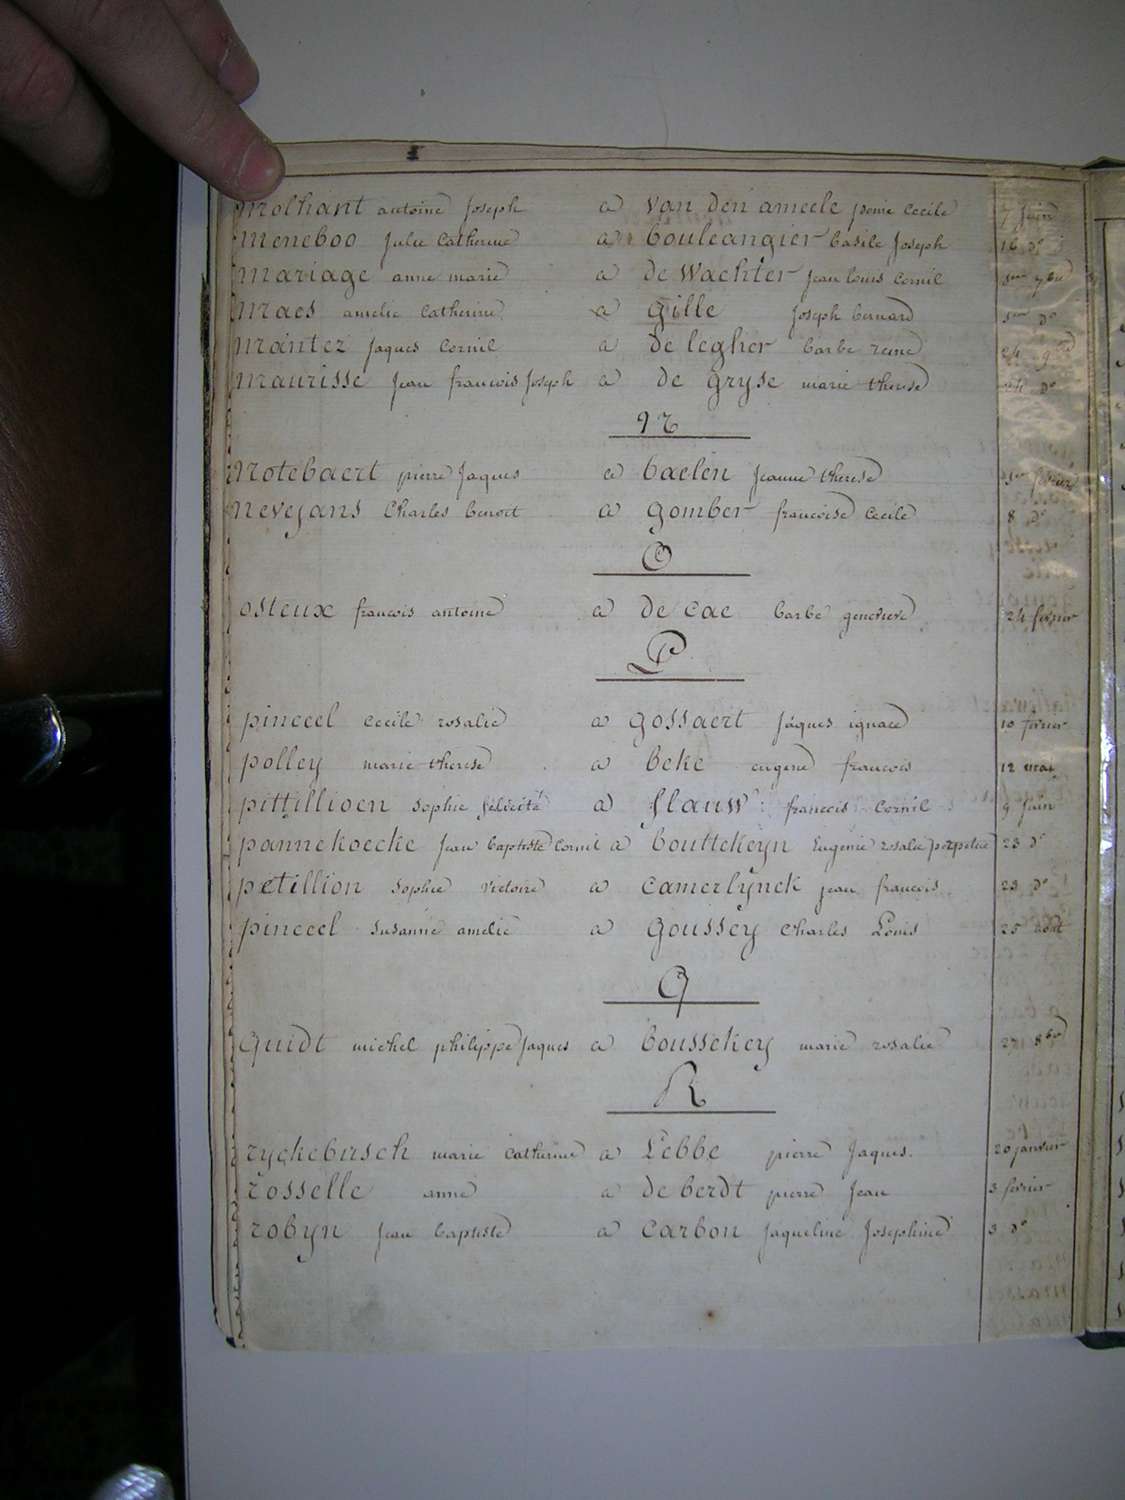 molhant antoine Joseph a van den ameele cecile 7 Juin
meneboo Julie Catherine a bouleangier basile Joseph 16 do
mariage anne marie a de wachter Jean louis Cornil
maes amelie Catherine a gille Joseph bernard do
mantez Jaques Cornil a de legher barbe reine 24
maurisse Jean francois Joseph a de gryse marie therese do
N
Notebaert pierre Jaques a baelen Jeanne therese fevrier
Nevejans Charles benoit a gomber francoise Cecile 8 do
O
osteux francois antoine a de cae barbe genevieve 24 fevrier
P
pinceel cecile rosalie a gossaert Jaques ignace 10 fevrier
polley marie therese a beke eugene francois 12 mai
pittillioen sophie félicité a flauw francois Cornil 9 Juin
pannekoecke Jean baptiste Cornil a bouttekeyn Eugenie rosalie perpetue 23 do
petillion sophie victoire a camerlynck jean francois 23 do
pinceel susanne amelie a goussey Charles Louis 25 aout
Q
quidt michel philippe Jaques a boussekey marie rosalie 27 8bre
R
ryckebusch marie catherine a Lebbe pierre Jaques. 20 janvier
rosselle anne a de berdt pierre Jean 3 fevrier
robyn Jean baptiste a carbon Jaqueline Josephine 3 do